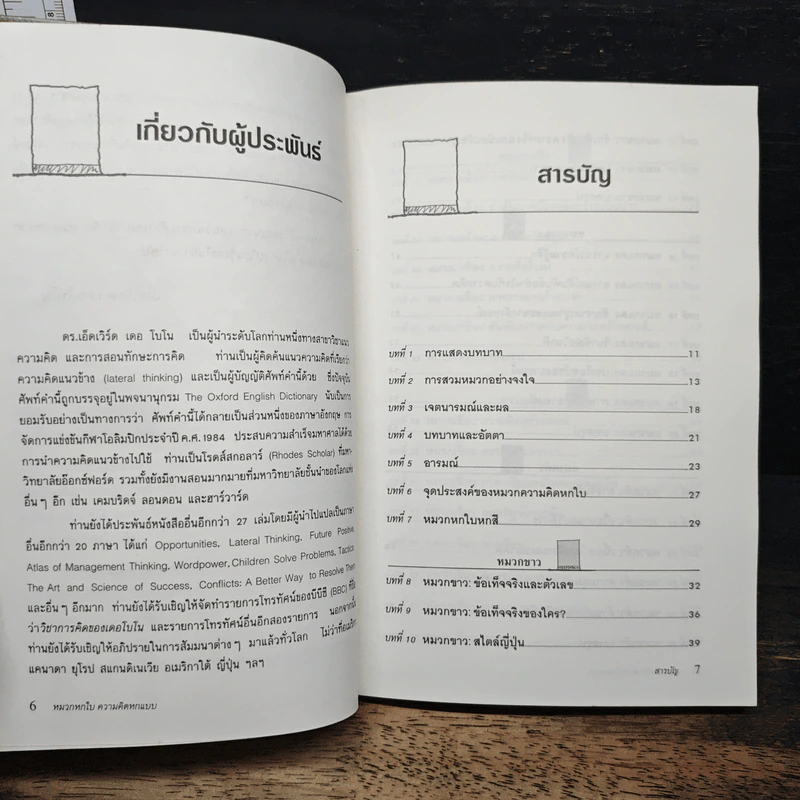 เกี่ยวกับผู้ประพันธ์
ดร.เอ็ดเวิร์ด เดอ โบโน เป็นผู้นำระดับโลกท่านหนึ่งทางสาขาวิชาแนว
ความคิด และการสอนทักษะการคิด ท่านเป็นผู้คิดค้นแนวความคิดที่เรียกว่า
ความคิดแนวข้าง (lateral thinking) และเป็นผู้บัญญัติศัพท์คำนี้ด้วย ซึ่งปัจจุบัน
ศัพท์คำนี้ถูกบรรจุอยู่ในพจนานุกรม The Oxford English Dictionary นับเป็นการ
ยอมรับอย่างเป็นทางการว่า ศัพท์คำนี้ได้กลายเป็นส่วนหนึ่งของภาษาอังกฤษ การ
จัดการแข่งขันกีฬาโอลิมปิกประจำปี ค.ศ. 1984 ประสบความสำเร็จมหาศาลได้ด้วย
การนำความคิดแนวข้างไปใช้ ท่านเป็นโรดส์สกอลาร์ (Rhodes Scholar) ที่มหา-
วิทยาลัยอ๊อกซ์ฟอร์ด รวมทั้งยังมีงานสอนมากมายที่มหาวิทยาลัยชั้นนำของโลกแห่ง
อื่นๆ อีก เช่น เคมบริดจ์ ลอนดอน และฮาร์วาร์ด
ท่านยังได้ประพันธ์หนังสืออื่นอีกกว่า 27 เล่มโดยมีผู้นำไปแปลเป็นภาษา
อื่นอีกกว่า 20 ภาษา ได้แก่ Opportunities, Lateral Thinking, Future Positive,
Atlas of Management Thinking, Wordpower, Children Solve Problems, Tactics:
The Art and Science of Success, Conflicts: A Better Way to Resolve Them
และอื่นๆ อีกมาก ท่านยังได้รับเชิญให้จัดทำรายการโทรทัศน์ของบีบีซี (BBC) ที่ชื่อ
ว่าวิชาการคิดของเดอโบโน และรายการโทรทัศน์อื่นอีกสองรายการ นอกจากนั้น
ท่านยังได้รับเชิญให้อภิปรายในการสัมมนาต่างๆ มาแล้วทั่วโลก ไม่ว่าที่อเมริกา
แคนาดา ยุโรป สแกนดิเนเวีย อเมริกาใต้ ญี่ปุ่น ฯลฯ
6 หมวกหกใบ ความคิดหกแบบ
สารบัญ
บทที่ 1 การแสดงบทบาท 11
บทที่ 2 การสวมหมวกอย่างจงใจ 13
บทที่ 3 เจตนารมณ์และผล 18
บทที่ 4 บทบาทและอัตตา 21
บทที่ 5 อารมณ์ 23
บทที่ 6 จุดประสงค์ของหมวกความคิดหกใบ 27
บทที่ 7 หมวกหกใบหกสี 29
หมวกขาว
บทที่ 8 หมวกขาว: ข้อเท็จจริงและตัวเลข 32
บทที่ 9 หมวกขาว: ข้อเท็จจริงของใคร? 36
บทที่ 10 หมวกขาว: สไตล์ญี่ปุ่น 39
สารบัญ 7